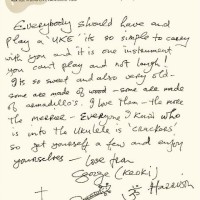 Everybody should have and
play a 'UKE' its so simple to carry
with you and it is one instrument
you cant play and not laugh!
Its so sweet and also very old-
Some are made of wood - some are made
of armadillo's. I love them - the more
the merrier - Everyone I know who
is into the ukulele is 'crackers'
so get yourself a few and enjoy
yourselves - love from
George (Keoki)
Harrison